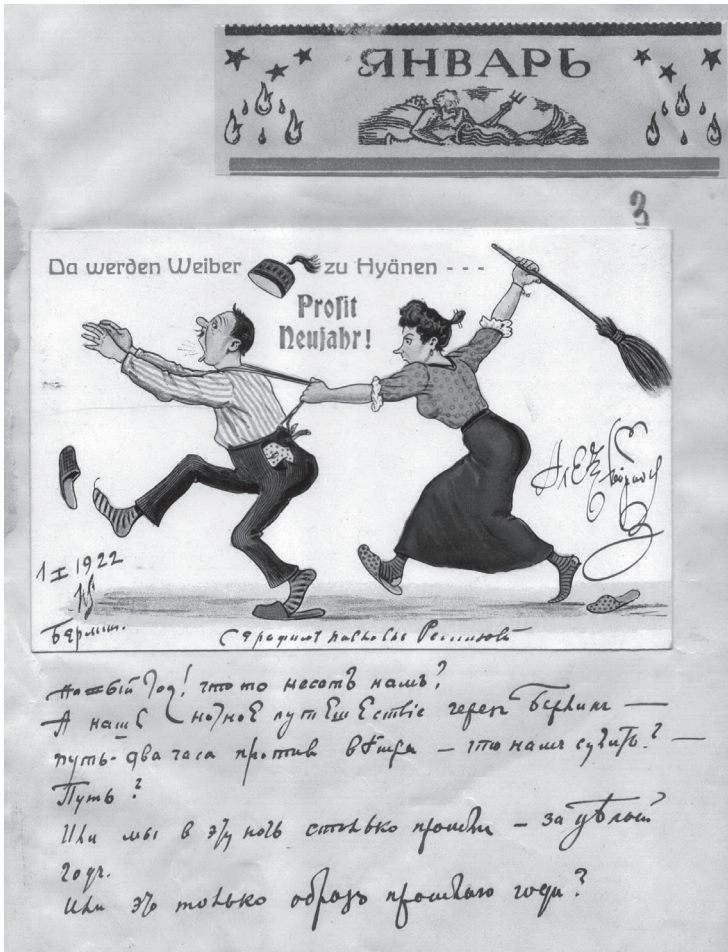 ЯНВАРЬ
3
Da werden Weiber zu Hyänen - - -
Prosit
Neujahr!
1 I 1922
Берлин.
Серафиме Павловне Ремизовой
Новый год! что то несетъ намъ?
А наше ночное путешествіе черезъ Берлин —
путь-два часа против вѣтра — что намъ сулитъ? —
Путь?
Или мы в эту ночь столько прошли — за цѣлый
годъ.
Или это только образъ прошлаго года?